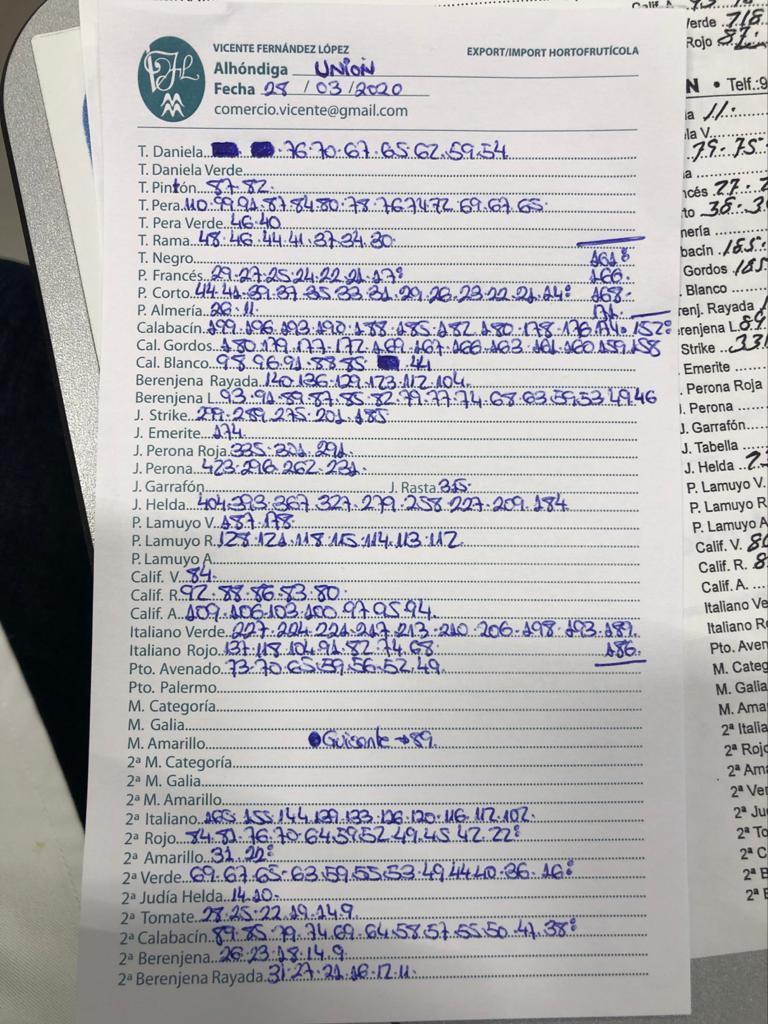 VICENTE FERNÁNDEZ LÓPEZ EXPORT/IMPORT HORTOFRUTÍCOLA
Alhóndiga UNION
Fecha 28 / 03 /2020
comercio.vicente@gmail.com
T. Daniela 76.70.67.65.62.59.54
T. Daniela Verde
T. Pintón 87.82.
T. Pera 110.99.91.87.84.80.78.76.74.72.69.67.65.
T. Pera Verde 46.40
T. Rama 48.46.44.41.37.34.30.
T. Negro 161
P. Francés 29.27.25.24.22.21.17 166.
P. Corto 44.41.39.37.35.33.31.29.26.23.22.21.14 168.
P. Almería 26.11. 171.
Calabacín 199.196.193.190.188.185.182.180.178.176.174.152
Cal. Gordos 180.179.177.172.169.167.166.163.161.160.159.158
Cal. Blanco 98.96.91.88.85 44
Berenjena Rayada 140.136.129.123.112.104.
Berenjena L. 93.91.89.87.85.82.79.77.74.68.63.59.53.49.46
J. Strike 299.289.275.201.185
J. Emerite 174.
J. Perona Roja 335.321.291.
J. Perona 423.296.262.231.
J. Garrafón J. Rasta 315.
J. Helda 404.393.367.327.279.258.227.209.184
P. Lamuyo V. 187.178.
P. Lamuyo R. 128.121.118.115.114.113.112.
P. Lamuyo A.
Calif. V. 84.
Calif. R. 92.88.86.83.80.
Calif. A. 109.106.103.100.97.95.94.
Italiano Verde 227.224.221.217.213.210.206.198.193.189.
Italiano Rojo 137.118.104.91.82.74.68. 186.
Pto. Avenado 73.70.65.59.56.52.49.
Pto. Palermo
M. Categoría
M. Galia
M. Amarillo Guisante → 89.
2ª M. Categoría
2ª M. Galia
2ª M. Amarillo
2ª Italiano 165.155.144.139.133.126.120.116.112.102.
2ª Rojo 84.81.76.70.64.59.52.49.45.42.22
2ª Amarillo 31.22
2ª Verde 69.67.65.63.59.55.53.49.44.40.36.16
2ª Judía Helda 14.10.
2ª Tomate 28.25.22.19.14.9.
2ª Calabacín 89.85.79.74.69.64.58.57.55.50.47.38
2ª Berenjena 26.23.18.14.9.
2ª Berenjena Rayada 31.27.21.16.12.11.
Verde 718
Rojo
N • Telf.:9
11.
79-75
27.2
bacín 185
Gordos
. Blanco
renj. Rayada
renjena L. 89
Strike 33
. Emerite
. Perona Roja
J. Perona
J. Garrafón
J. Tabella
J. Helda
P. Lamuyo V.
P. Lamuyo R
P. Lamuyo A
Calif. V.
Calif. R.
Calif. A.
Italiano Ve
Italiano Ro
Pto. Aven
M. Categ
M. Galia
M. Ama
2ª Italia
2ª Rojo
2ª Ama
2ª Ver
2ª Ju
2ª To
2ª C
2ª B
2ª B